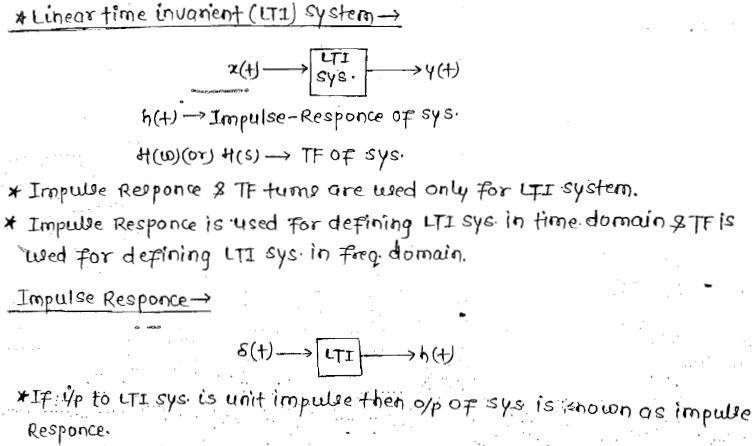 * Linear time invarient (LTI) System →
x(t) → LTI Sys. → y(t)
h(t) → Impulse-Responce of sys.
H(ω)(or) H(s) → TF of sys.
* Impulse Responce & TF tums are used only for LTI system.
* Impulse Responce is used for defining LTI sys. in time domain & TF is
used for defining LTI sys. in freq. domain.
Impulse Responce →
δ(t) → LTI → h(t)
* If i/p to LTI sys. is unit impulse then o/p of sys is known as impulse
Responce.